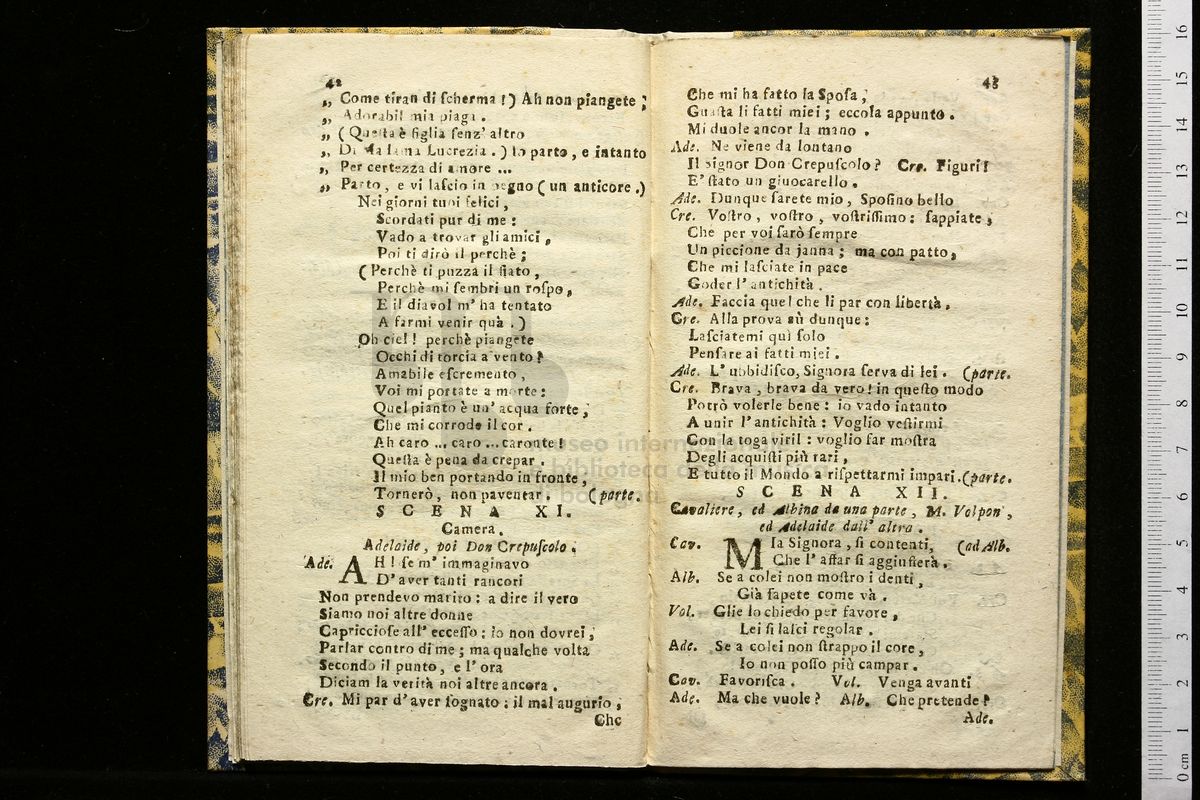 42
„ Come tiran di ſcherma!) Ah non piangete;
„ Adorabil mia piaga.
„ (Queſta è figlia ſenz' altro
„ Di Madama Lucrezia.) Io parto, e intanto
„ Per certezza di amore ...
„ Parto, e vi laſcio in pegno (un anticore.)
Nei giorni tuoi felici,
Scordati pur di me:
Vado a trovar gli amici,
Poi ti dirò il perchè;
(Perchè ti puzza il fiato,
Perchè mi ſembri un roſpo,
E il diavol m' ha tentato
A farmi venir quà.)
Oh ciel! perchè piangete
Occhi di torcia a vento?
Amabile eſcremento,
Voi mi portate a morte:
Quel pianto è un' acqua forte,
Che mi corrode il cor.
Ah caro ... caro ... caronte!
Queſta è pena da crepar.
Il mio ben portando in fronte,
Tornerò, non paventar. (parte.
SCENA XI.
Camera.
Adelaide, poi Don Crepuſcolo.
Ade. AH! ſe m' immaginavo
D' aver tanti rancori
Non prendevo marito: a dire il vero
Siamo noi altre donne
Capriccioſe all' ecceſſo: io non dovrei,
Parlar contro di me; ma qualche volta
Secondo il punto, e l' ora
Diciam la verità noi altre ancora.
Cre. Mi par d' aver ſognato: il mal augurio,
Che
43
Che mi ha fatto la Spoſa,
Guaſta li fatti miei; eccola appunto.
Mi duole ancor la mano.
Ade. Ne viene da lontano
Il Signor Don Crepuſcolo? Cre. Figuri!
E' ſtato un giuocarello.
Ade. Dunque ſarete mio, Spoſino bello
Cre. Voſtro, voſtro, voſtriſſimo: ſappiate,
Che per voi ſarò ſempre
Un piccione da janna; ma con patto,
Che mi laſciate in pace
Goder l' antichità.
Ade. Faccia quel che li par con libertà.
Cre. Alla prova sù dunque:
Laſciatemi quì ſolo
Penſare ai fatti miei.
Ade. L' ubbidiſco, Signora ſerva di lei. (parte.
Cre. Brava, brava da vero! in queſto modo
Potrò volerle bene: io vado intanto
A unir l' antichità: Voglio veſtirmi
Con la toga viril: voglio far moſtra
Degli acquiſti più rari,
E tutto il Mondo a riſpettarmi impari. (parte.
SCENA XII.
Cavaliere, ed Albina da una parte, M. Volpon,
ed Adelaide dall' altra.
Cav. MIa Signora, ſi contenti, (ad Alb.
Che l' affar ſi aggiuſterà.
Alb. Se a colei non moſtro i denti,
Già ſapete come và.
Vol. Glie lo chiedo per favore,
Lei ſi laſci regolar.
Ade. Se a colei non ſtrappo il core,
Io non poſſo più campar.
Cav. Favoriſca. Vol. Venga avanti
Ade. Ma che vuole? Alb. Che pretende?
Ade.
museo internazionale
biblioteca della musica
bologna
0 cm 1 2 3 4 5 6 7 8 9 10 11 12 13 14 15 16